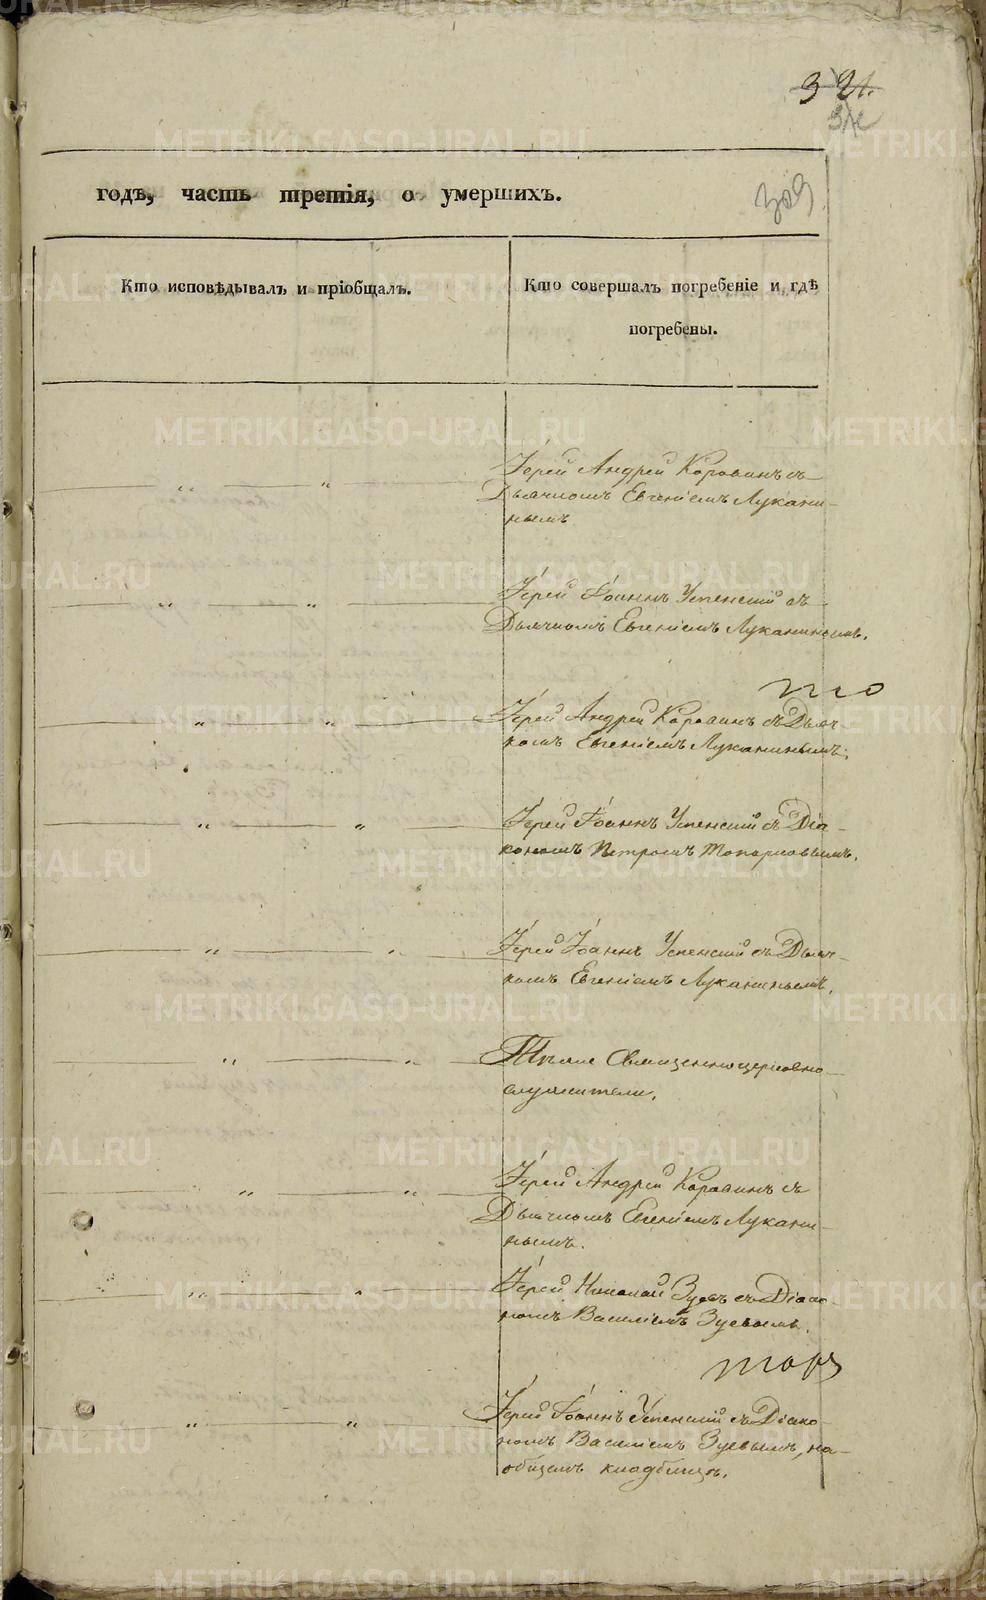 321.
309
годъ, часть третія, о умершихъ.
Кто исповѣдывалъ и пріобщалъ.
Кто совершалъ погребеніе и гдѣ
погребены.
Іерей Андрей Коровинъ съ
Дьячкомъ Евгеніемъ Лукани-
нымъ
Іерей Іоаннъ Успенскій съ
Дьячкомъ Евгеніемъ Луканинымъ.
Іерей Андрей Коровинъ съ Дьяч-
комъ Евгеніемъ Луканинымъ.
Іерей Іоаннъ Успенскій съ Діа-
кономъ Петромъ Топорковымъ.
Іерей Іоаннъ Успенскій съ Дьяч-
комъ Евгеніемъ Луканинымъ.
Тѣже Священноцерковно-
служители.
Іерей Андрей Коровинъ съ
Дьячкомъ Евгеніемъ Лукани-
нымъ.
Іерей Николай Зуевъ съ Діако-
номъ Василіемъ Зуевымъ.
Іерей Іоаннъ Успенскій съ Діако-
номъ Василіемъ Зуевымъ, на
общемъ кладбищѣ.
METRIKI.GASO-URAL.RU